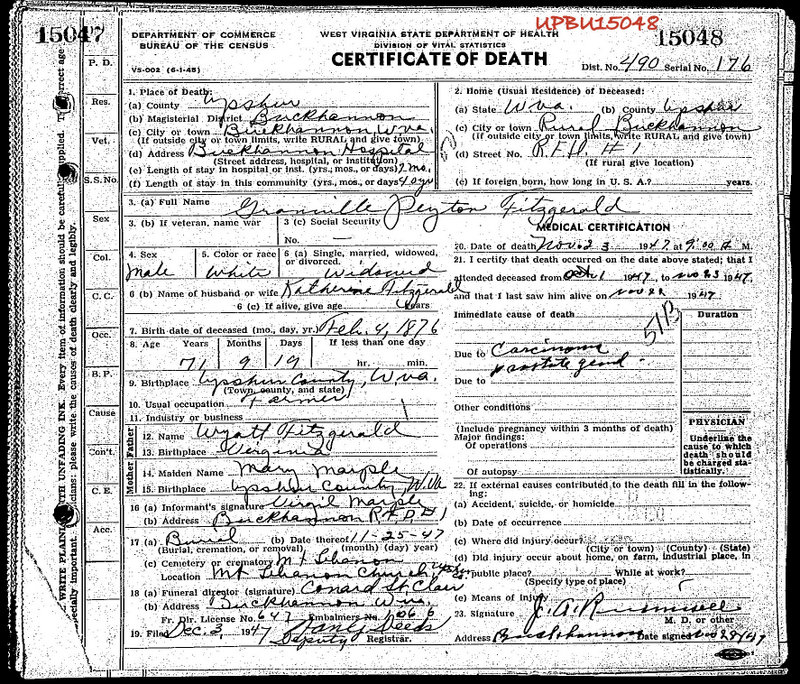 UPBU15048
15047
15048
DEPARTMENT OF COMMERCE
BUREAU OF THE CENSUS
WEST VIRGINIA STATE DEPARTMENT OF HEALTH
DIVISION OF VITAL STATISTICS
CERTIFICATE OF DEATH
VS-002 (6-1-45)
Dist. No. 490 Serial No. 176
WRITE PLAINLY WITH UNFADING INK. Every item of information should be carefully supplied.
please write the causes of death clearly and legibly.
P. D.
Res.
Vet.
S.S. No.
Sex
Col.
C. C.
Occ.
B. P.
Cause
Con't.
C. E.
Acc.
1. Place of Death:
(a) County Upshur
(b) Magisterial District Buckhannon
(c) City or town Buckhannon, W.va.
(If outside city or town limits, write RURAL and give town)
(d) Address Buckhannon Hospital
(Street address, hospital, or institution)
(e) Length of stay in hospital or inst. (yrs., mos., or days) 2 mo.
(f) Length of stay in this community (yrs., mos., or days)
2. Home (Usual Residence) of Deceased:
(a) State W.va. (b) County Upshur
(c) City or town Rural Buckhannon
(If outside city or town limits, write RURAL and give town)
(d) Street No. R.F.D. # 1
(If rural give location)
(e) If foreign born, how long in U. S. A.? years.
3. (a) Full Name Granville Peyton Fitzgerald
3. (b) If veteran, name war
3 (c) Social Security
No. —
4. Sex
male
5. Color or race
White
6 (a) Single, married, widowed, or divorced.
Widowed
6 (b) Name of husband or wife Katherine Fitzgerald
6 (c) If alive, give age years
7. Birth date of deceased (mo., day, yr.) Feb. 4, 1876
8. Age Years Months Days If less than one day
71 9 19 hr. min.
9. Birthplace Upshur County, W.va.
(Town, county, and state)
10. Usual occupation Farmer
11. Industry or business
Father
12. Name Wyatt Fitzgerald
13. Birthplace Virginia
Mother
14. Maiden Name Mary Marple
15. Birthplace Upshur County, W.Va
16 (a) Informant's signature Virgil Marple
(b) Address Buckhannon R.F.D. #1
17 (a) Burial (b) Date thereof 11-25-47
(Burial, cremation, or removal) (month) (day) (year)
(c) Cemetery or crematory Mt Lebanon
Location Mt Lebanon Church
18 (a) Funeral director (signature) Conard St Clair
(b) Address Buckhannon W.va.
Fr. Dir. License No. 647 Embalmers No.
19. Filed Dec. 3, 1947
Deputy Registrar.
MEDICAL CERTIFICATION
20. Date of death Nov. 23 1947 at 9:00 A M.
21. I certify that death occurred on the date above stated; that I
attended deceased from Oct 1 1947 to Nov 23 1947.
and that I last saw him alive on Nov 22 1947.
Immediate cause of death
Duration
51B
Due to Carcinoma
prostate gland
Due to
Other conditions
(Include pregnancy within 3 months of death)
Major findings:
Of operations
Of autopsy
PHYSICIAN
Underline the cause to which death should be charged statistically.
22. If external causes contributed to the death fill in the following:
(a) Accident, suicide, or homicide
(b) Date of occurrence
(c) Where did injury occur?
(City or town) (County) (State)
(d) Did injury occur about home, on farm, industrial place, in
public place? While at work?
(Specify type of place)
(e) Means of injury
23. Signature
M. D. or other
Address Buckhannon Date signed Nov 28 1947